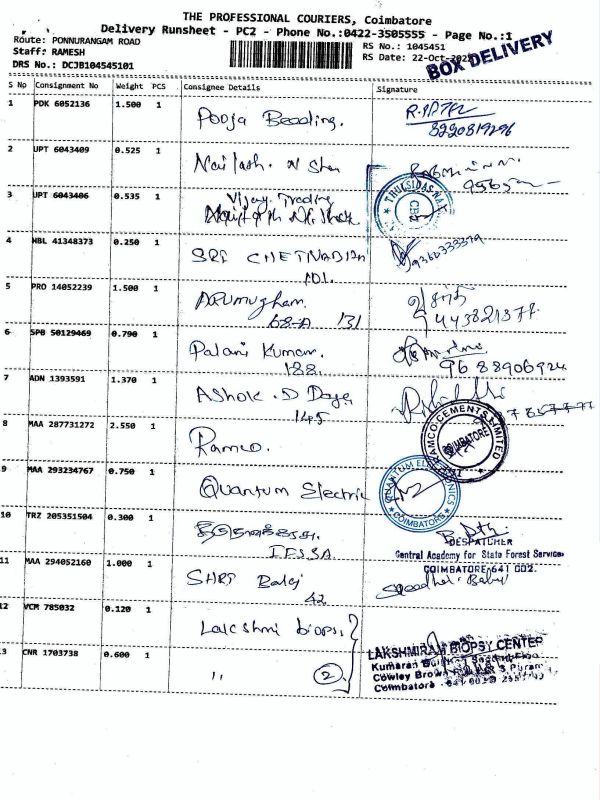 THE PROFESSIONAL COURIERS, Coimbatore
Delivery Runsheet - PC2 - Phone No.:0422-3505555 - Page No.:1
Route: PONNURANGAM ROAD
RS No.: 1045451
Staff: RAMESH
RS Date: 22-Oct-2025
BOX DELIVERY
DRS No.: DCJB104545101
S No Consignment No Weight PCS Consignee Details Signature
1 PDK 6052136 1.500 1 Pooja Beading.
8220819296
2 UPT 6043409 0.525 1 Nailash. N Shan
3 UPT 6043406 0.535 1 Vijay Trading
THULSIDAS
CBE
4 HBL 41348373 0.250 1 SRI CHETNADIHA
9360333379
5 PRO 14052239 1.500 1 Arumugham.
68-A 131
9443821377
6 SPB 50129469 0.790 1 Palani Kumar.
188.
9688906924
7 ADN 1393591 1.370 1 Ashok . D Daga
145
8 MAA 287731272 2.550 1 Ramco.
RAMCO CEMENTS LIMITED
COIMBATORE
9 MAA 293234767 0.750 1 Quantum Electric
QUANTUM ELECTRONICS
COIMBATORE
10 TRZ 205351504 0.300 1
IFSSA.
DESPATCHER
Central Academy for State Forest Service
COIMBATORE-641 002.
11 MAA 294052160 1.000 1 SHRI Balaj
42
12 VCM 785032 0.120 1 Lakshmi biops.
13 CNR 1703738 0.600 1 " 2
LAKSHMIRAM BIOPSY CENTER
Kumaran
Cowley Brown
Coimbatore